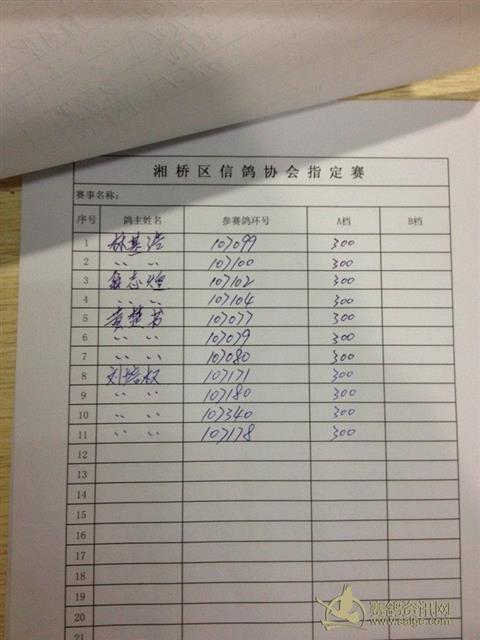 湘桥区信鸽协会指定赛
赛事名称：
序号 鸽主姓名 参赛鸽环号 A档 B档
1 林基浩 107099 300
2 〃 〃 107100 300
3 志煌 107102 300
4 〃 〃 107104 300
5 黄楚 107077 300
6 〃 〃 107079 300
7 〃 〃 107080 300
8 刘培权 107171 300
9 〃 〃 107180 300
10 〃 〃 107340 300
11 〃 〃 107178 300
12
13
14
15
16
17
18
19
20
21
赛鸽资讯网
www.saige.com